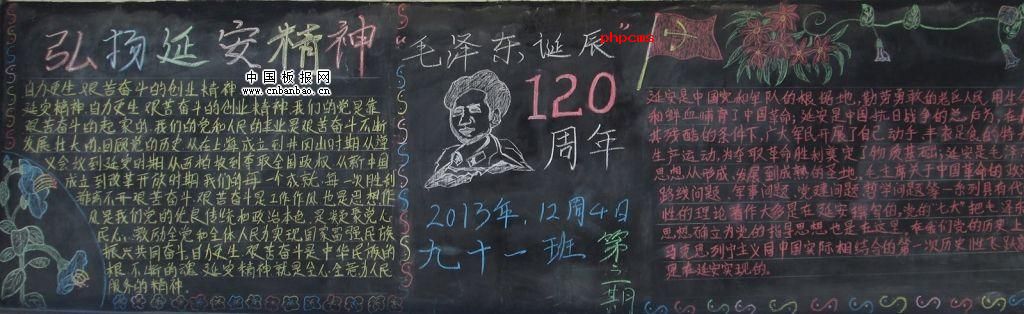 弘扬延安精神
中国板报网
www.cnbanbao.cn
自力更生 艰苦奋斗的创业精神
延安精神,自力更生 艰苦奋斗的创业精神,我们的党是靠
艰苦奋斗的起家的,我们的党和人民的事业是艰苦奋斗不断
发展壮大的,回顾党的历史从在上海成立到井冈山时期从遵
义会议到延安时期从西柏坡到夺取全国政权,从新中国
成立到改革开放时期我们的每一个成就,每一次胜利
都离不开艰苦奋斗,艰苦奋斗是工作作风,也是思想作
风是我们党的优良传统和政治本色,是凝聚党人
民人心,激励全党和全体人民为实现国家富强民族
振兴共同奋斗,自力更生,艰苦奋斗是中华民族的
根 不断
延安精神就是全心全意为人民
服务的精神.
“毛泽东诞辰”
phpcms
120
周年
2013年,12周4日
九十一班
第二期
延安是中国党和军队的根据地,勤劳勇敢的老区人民,用生命
和鲜血哺育了中国革命;延安是中国抗日战争的总后方,在极
其残酷的条件下,广大军民开展了自己动手,丰衣足食的
生产运动,为夺取革命胜利奠定了物质基础;延安是毛泽东
思想从形成,发展到成熟的圣地,毛主席关于中国革命的政治
路线问题,军事问题,党建问题,哲学问题等一系列具有代表
性的理论著作大多是在延安撰写的,党的“七大”把毛泽东
思想确立为党的指导思想也是在这里,在我们党的历史上
马克思,列宁主义同中国实际相结合的第一次历史性飞跃
更在延安实现的.